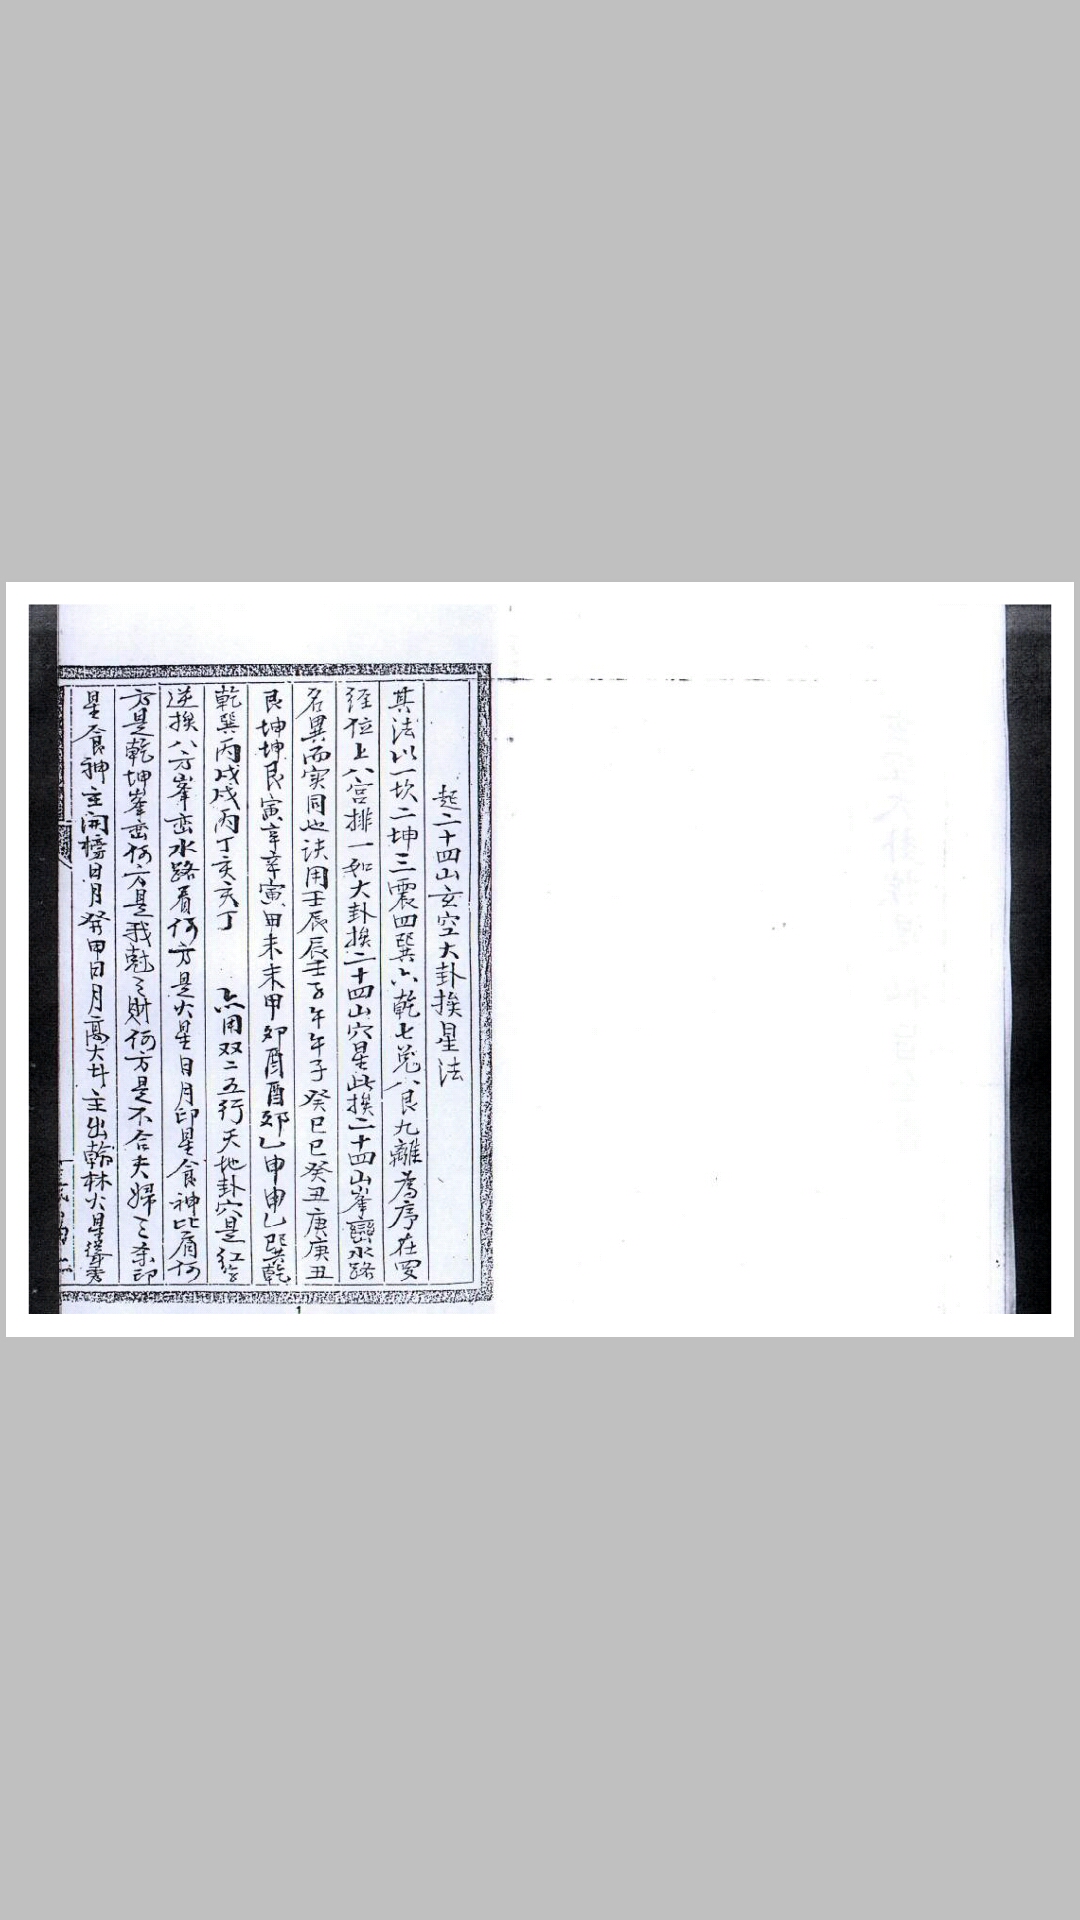 起二十四山玄空大卦挨星法
其法以一坎二坤三震四巽六乾七兌八艮九離為序在安
位上八宮排一如大卦挨二十四山穴星此挨二十四山峯巒水路
名異而实同也訣用壬辰辰壬子午午子癸巳巳癸丑庚庚丑
艮坤坤艮寅辛辛寅甲未未甲卯酉酉卯乙申申乙巽乾
乾巽丙戌戌丙丁亥亥丁 亦用双二五行天地卦穴是
逆挨八方峯峦水路看何方是火星日月印星食神比肩何
方是乾坤峯峦何方是我尅之財何方是不合夫婦之杀印
星食神主開榜日月發甲日月高大斗主出翰林火星
1